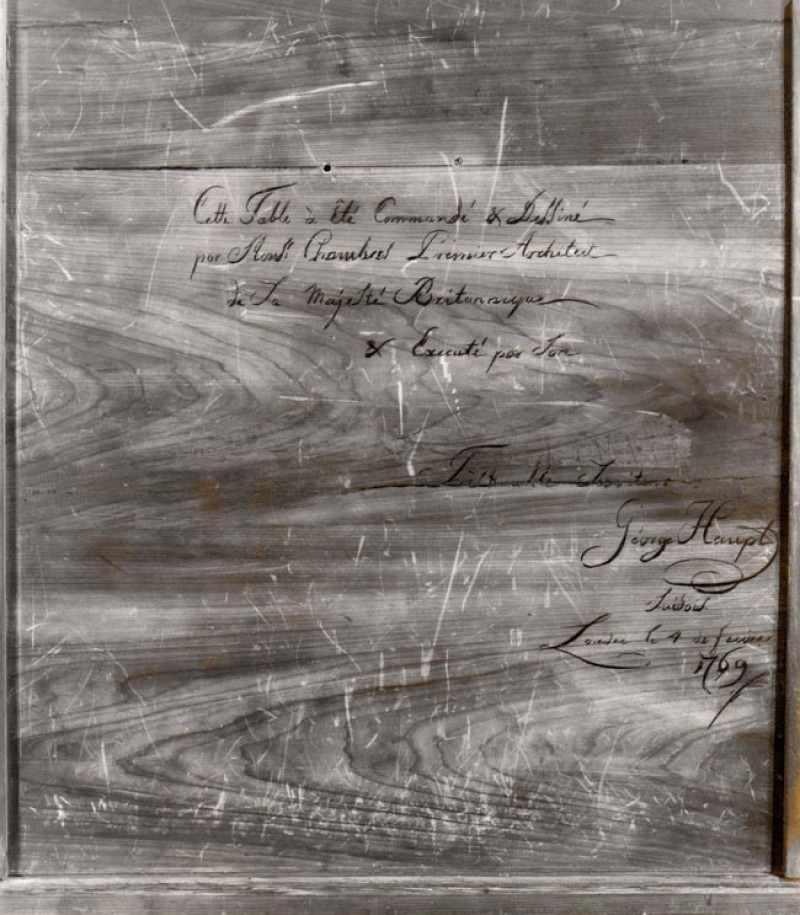 Cette Table à Été Commandé & Dessiné
par Monsr. Chambers Premier Architect
de Sa Majesté Britannique
& Executé par Son
Très humble Serviteur
George Haupt
Suédois
Londre le 4 de fevrier
1769